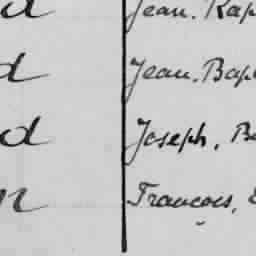 d Jean. Rap
d Jean. Bap
d Joseph. Ba
n Francois.